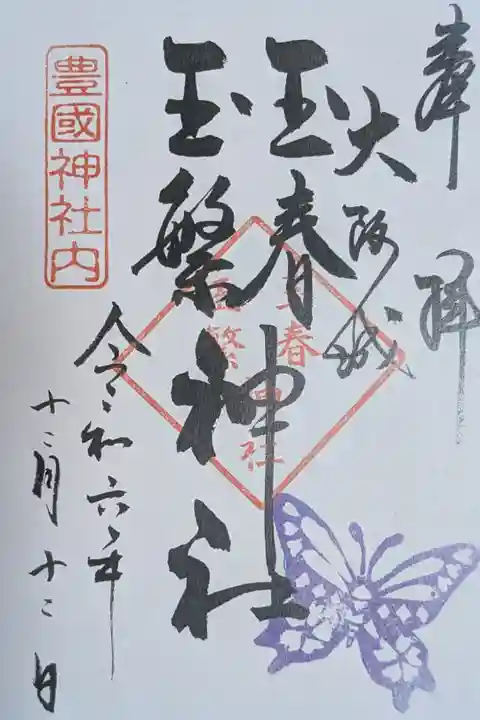 奉拝
大阪城
玉春
玉繁神社
玉春
玉繁
神社
豊國神社内
令和六年
十二月十二日